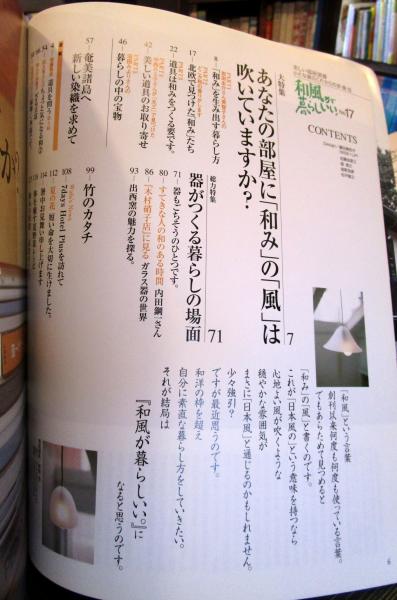 和風が
暮らしいい。
17
CONTENTS
大特集
あなたの部屋に「和み」の「風」は
吹いていますか? 7
8 「和み」を生み出す暮らし方
17 北欧で見つけた「和み」たち
22 道具は和みをつくる要です。
42 美しい道具のお取り寄せ
46 暮らしの中の宝物
57 奄美諸島へ
新しい染織を求めて
総力特集
器がつくる暮らしの場面 71
71 器もごちそうのひとつです。
80 すてきな人の和のある時間 内田鋼一さん
86 「木村硝子店」に見る ガラス器の世界
93 出西窯の魅力を探る。
99 竹のカタチ
108 7days Hotel Plusを訪れて
112 夏の花 短い命を大切に生けました。
114 暑中お見舞い申し上げます
「和風」という言葉
創刊以来何度も何度も使っている言葉。
でもあらためて見つめると
「和み」の「風」と書くのです。
これが「日本風の」という意味を持つなら
心地よい風が吹くような
穏やかな雰囲気が
まさに「日本風」と通じるのかもしれません。
少々強引?
ですが最近思うのです。
和洋の枠を超え
自分に素直な暮らし方をしていきたい。
それが結局は
『和風が暮らしいい。』に
なると思うのです。
6